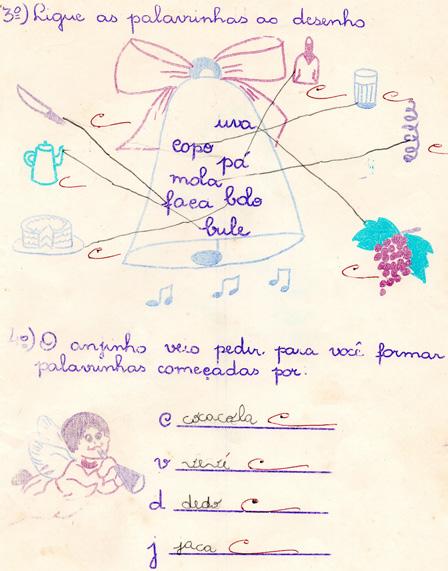 3º) Ligue as palavrinhas ao desenho
uva
copo
pá
mola
faca bolo
bule
4º) O anjinho veio pedir para você formar
palavrinhas começadas por:
c cocacola C
v vevé C
d dedo C
j jaca C